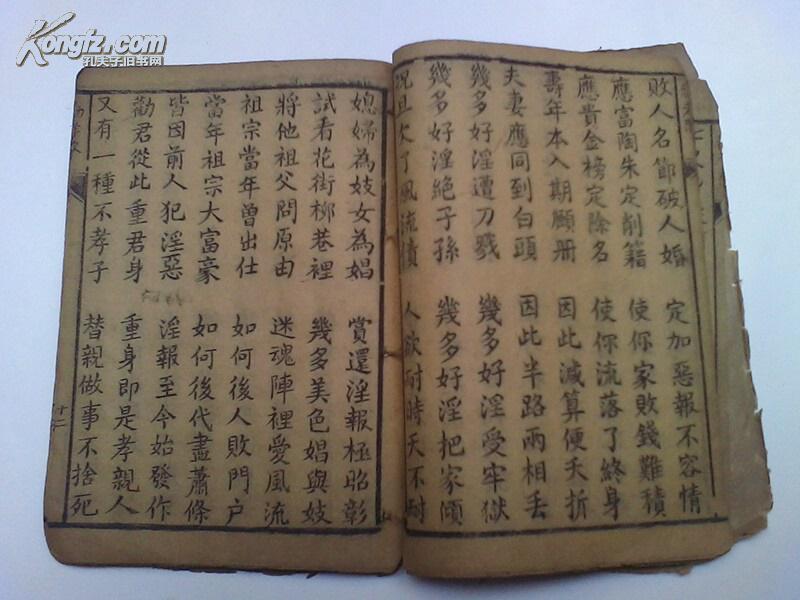 Kongfz.com
孔夫子旧书网
敗人名節破人婚 定加惡報不容情
應富陶朱定削籍 使你家敗錢難積
應貴金榜定除名 使你流落了終身
壽年本入期頤册 因此減算便夭折
夫妻應同到白頭 因此半路兩相丟
幾多好淫遭刀戮 幾多好淫受牢獄
幾多好淫絕子孫 幾多好淫把家傾
況且欠了風流債 人欲耐時天不耐
媳婦為妓女為娼 賞還淫報極昭彰
試看花街柳巷裡 幾多美色娼與妓
將他祖父問原由 迷魂陣裡愛風流
祖宗當年曾出仕 如何後人敗門户
當年祖宗大富豪 如何後代盡蕭條
皆因前人犯淫惡 淫報至今始發作
勸君從此重君身 重身即是孝親人
又有一種不孝子 替親做事不捨死